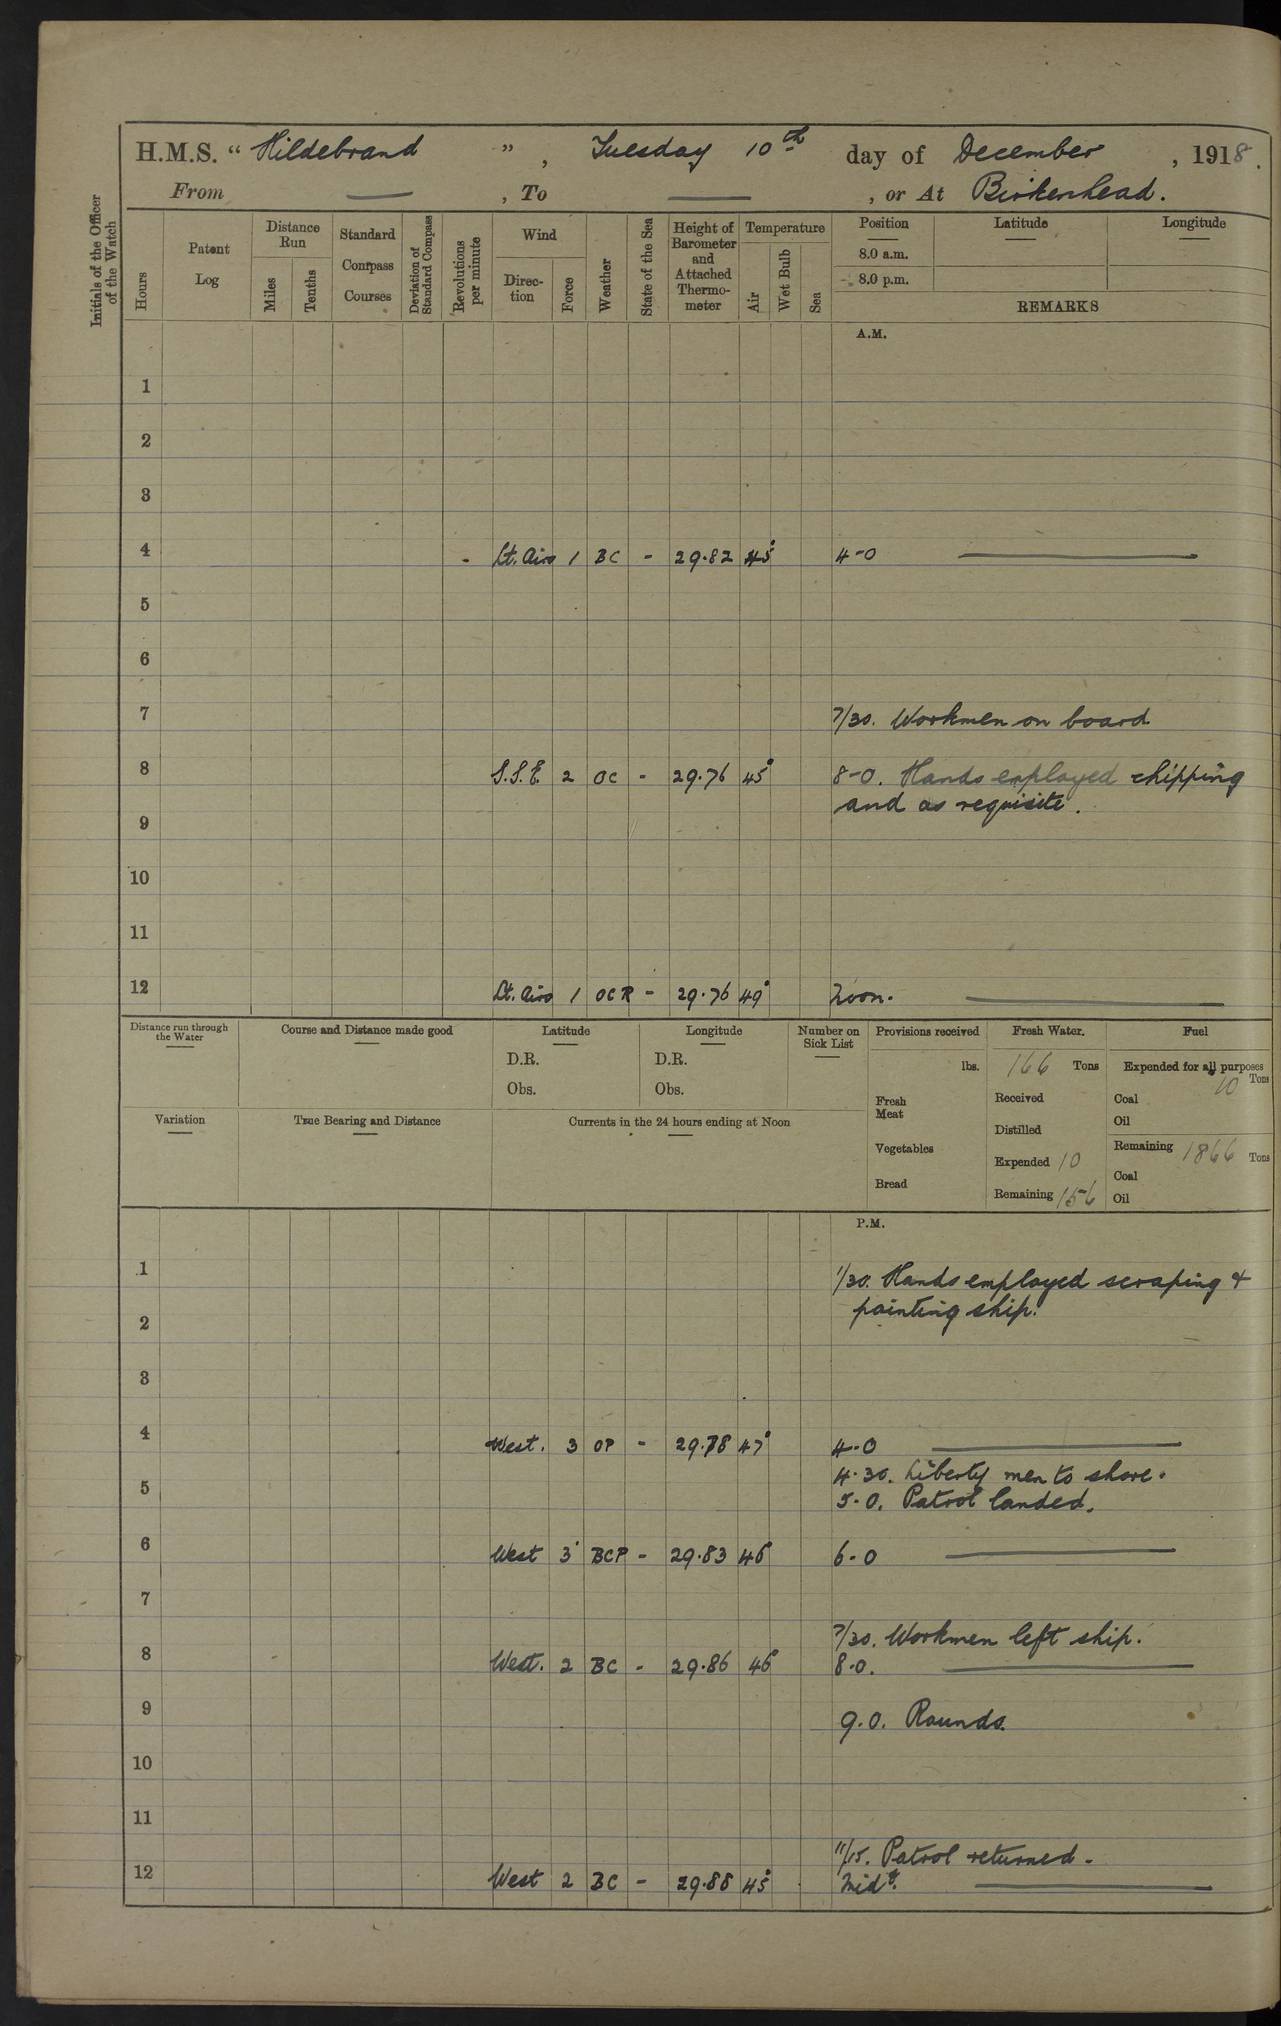 H.M.S. “ Hildebrand ” , Tuesday 10th day of December , 1918.
From — , To — , or At Birkenhead.
Initials of the Officer of the Watch
Hours
Patent Log
Distance Run
Miles
Tenths
Standard Compass Courses
Deviation of Standard Compass
Revolutions per minute
Wind
Direc-tion
Force
Weather
State of the Sea
Height of Barometer and Attached Thermo-meter
Temperature
Air
Wet Bulb
Sea
Position Latitude Longitude
8.0 a.m.
8.0 p.m.
REMARKS
A.M.
1
2
3
4 Lt. Airs 1 BC - 29.82 45° 4-0 —
5
6
7 7/30. Workmen on board
8 S.S.E. 2 OC - 29.76 45° 8-0. Hands employed chipping
and as requisite.
9
10
11
12 Lt. Airs 1 OCR - 29.76 49° Noon. —
Distance run through the Water
Course and Distance made good
Latitude
D.R.
Obs.
Longitude
D.R.
Obs.
Number on Sick List
Provisions received
lbs.
Fresh Meat
Vegetables
Bread
Fresh Water.
166 Tons
Received
Distilled
Expended 10
Remaining 156
Fuel
Expended for all purposes
10 Tons
Coal
Oil
Remaining 1866 Tons
Coal
Oil
Variation
True Bearing and Distance
Currents in the 24 hours ending at Noon
P.M.
1 1/30. Hands employed scraping &
painting ship.
2
3
4 West. 3 OP - 29.78 47° 4-0 —
4.30. Liberty men to shore.
5 5-0. Patrol landed.
6 West 3 BCP - 29.83 46° 6-0 —
7
7/30. Workmen left ship.
8 West. 2 BC - 29.86 46° 8.0. —
9 9.0. Rounds.
10
11
11/15. Patrol returned.
12 West 2 BC - 29.88 45° Midt. —